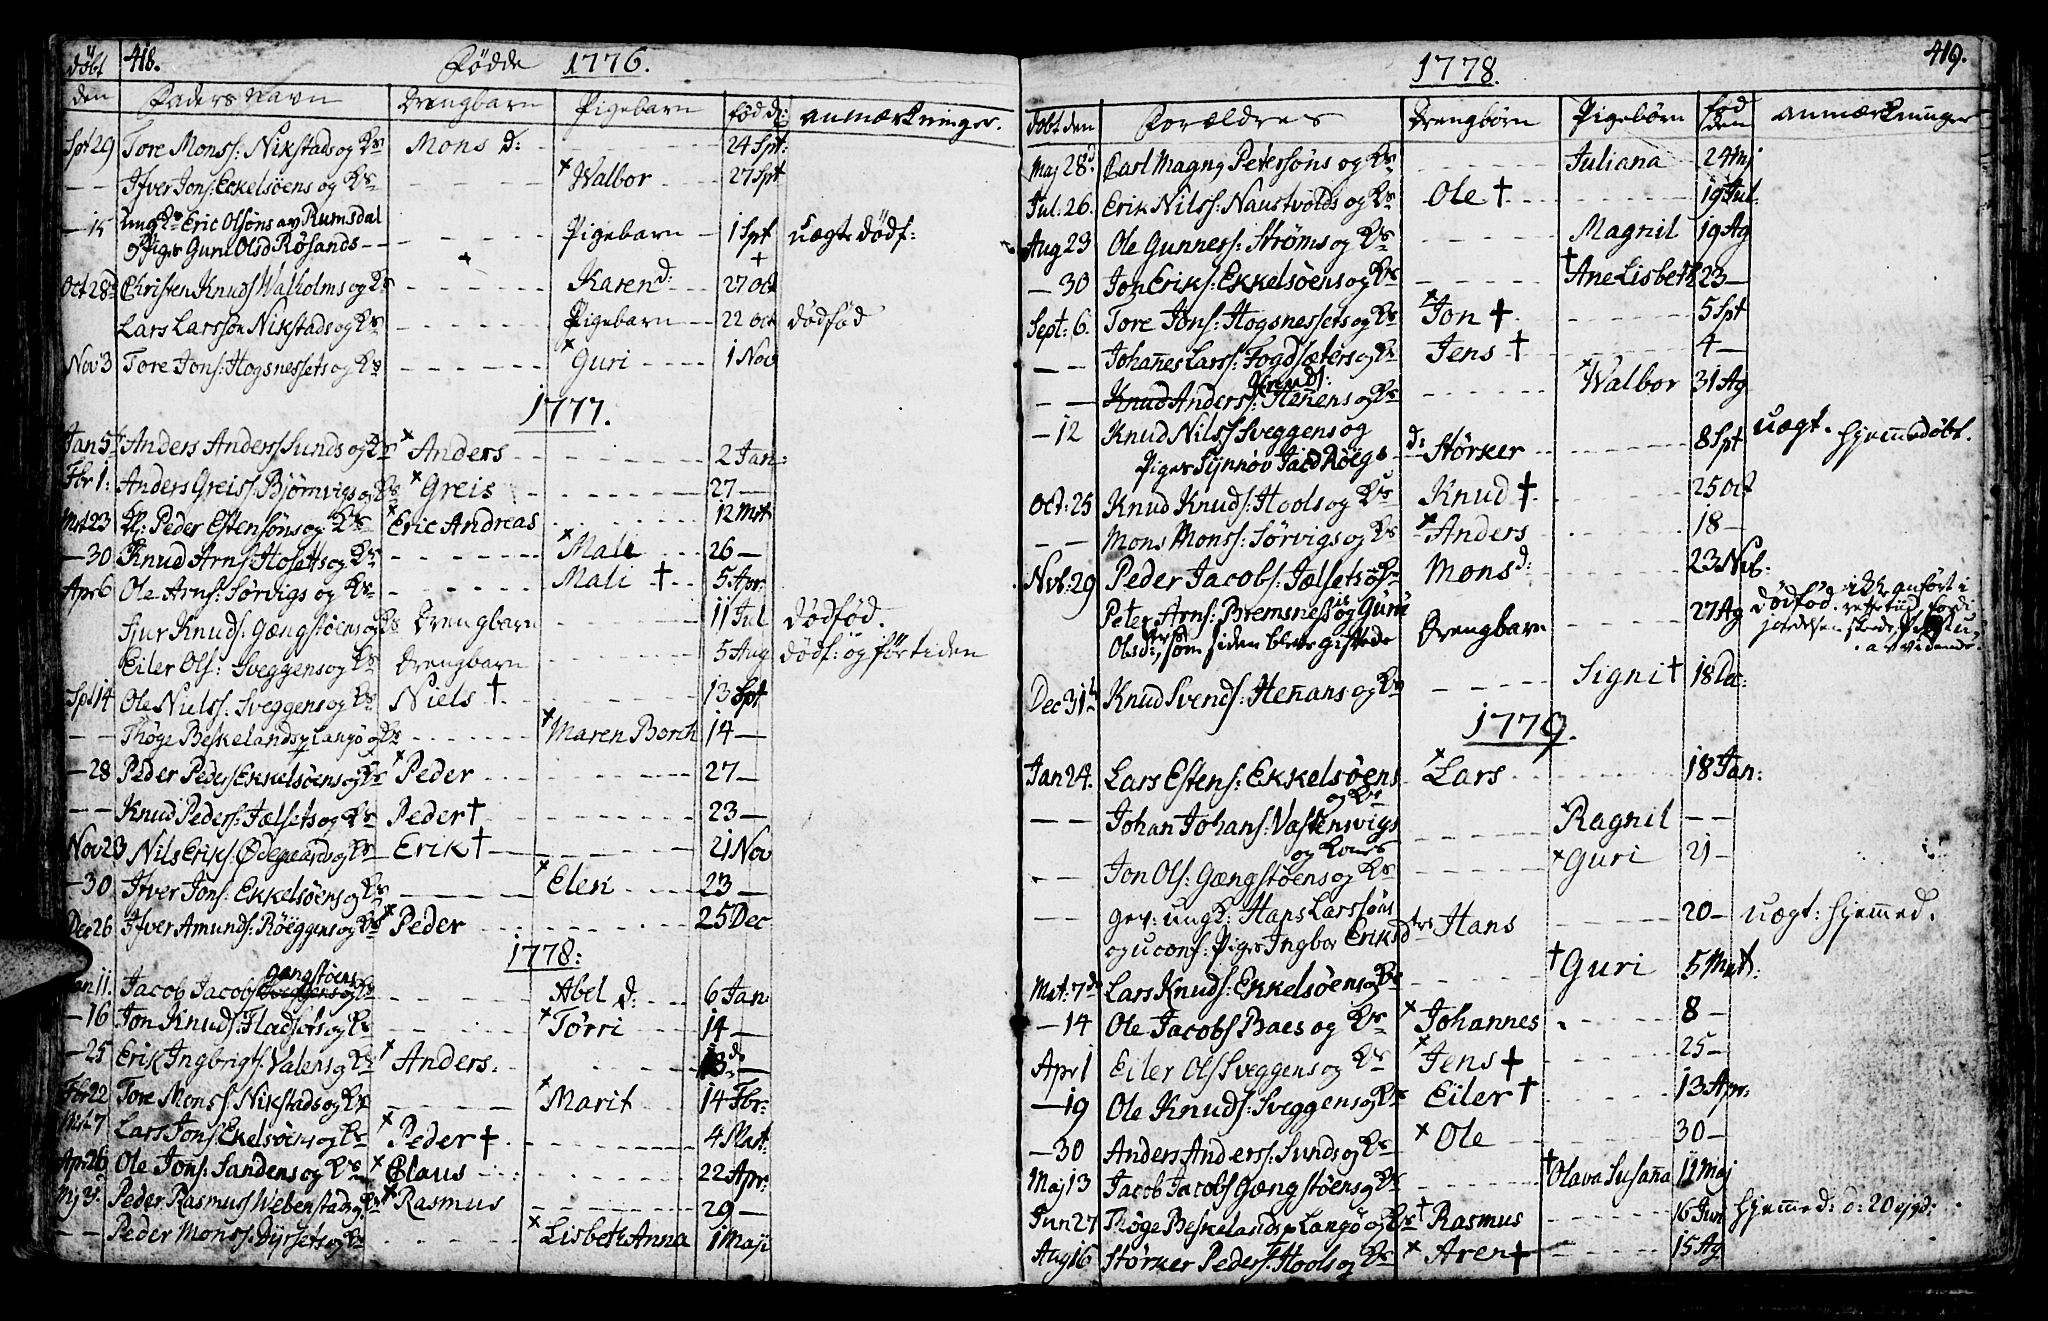 döbt 418. Födde 1776.
den Faders Navn Drengbarn Pigebarn föd d: anmærkninger.
Spt 29 Tore Monss: Nikstads og K⁰ Mons d: 24 Spt:
— — Ifver Jons: Eckelsöens og K⁰ × Walbor 27 Spt
— 15 ungK⁰ Eric Olsöns av Rumsdal
og Pige Guru Olsd Røsands Pigebarn 1 Spt uægte dödf:
Oct 28 Christen Knuds Walholms og K⁰ Karen d: 27 Oct
Lars Larssøn Nikstads og K⁰ Pigebarn 22 Oct dödföd
Nov 3 Tore Jons: Hogsnessets og K⁰ × Guri 1 Nov
1777.
Jan 5 Anders Anderss Sunds og K⁰ × Anders 2 Jan:
Fbr 1: Anders Greiss: Björnvigs og K⁰ × Greis 27 —
Mrt 23 Kl: Peder Estensöns og K⁰ × Eric Andreas 12 Mrt
— 30 Knud Arns Hosetts og K⁰ × Mali 26 —
Apr 6 Ole Arns: Sørvigs og K⁰ Mali † 5 Apr:
Siur Knuds: Gængstøens og K⁰ Drengbarn 11 Jul Dödföd.
Eiler Ols: Sveggens og K⁰ Drengbarn 5 Aug dödf: og förtiden
Spt 14 Ole Nielss: Sveggens og K⁰ Niels † 13 Spt
— — Thøge Beskelands p Langø og K⁰ × Maren Borch 14 —
— 28 Peder Peders Ekkelsöens og K⁰ × Peder 27 —
— — Knud Peders: Jælsets og K⁰ Peder † 23 —
Nov 23 Nils Eriks: Ødegaards og K⁰ Erik † 21 Nov
— 30 Ifver Jons: Ekkelsöens og K⁰ × Elen 23 —
Dec 26 Ifver Amunds: Röeggens og K⁰ × Peder 25 Dec
1778:
Jan 11. Jacob Jacobs Gangstöens og K⁰ Abel d: 6 Jan:
— 16 Jon Knuds: Fladsets og K⁰ × Törri 14 —
— 25 Erik Ingbrigts: Valens og K⁰ × Anders. —
Fbr 22 Tore Monss: Nikstads og K⁰ × Marit 14 Fbr:
Mrt 7 Lars Jons Ekelsöens og K⁰ × Peder † 4 Mart:
Apr 26 Ole Jons: Sandens og K⁰ × Claus 22 Apr:
Mj 3 Peder Rasmus Webenstad og K⁰ × Rasmus 29 —
— — Peder Monss: Dyrsets og K⁰ × Lisbeth Anna 1 Maji
1778. 419.
Döbt den Forældres Drengbörn Pigebörn föd den anmærkninger
Maj 28 Carl Magn9 Petersöns og K⁰ Juliana 24 Mj
Jul: 26. Erik Nilss: Naustvolds og K⁰ Ole † 19 Jul.
Aug 23 Ole Gunness: Ströms og K⁰ Magnil 19 Ag
— 30 Jon Eriks: Ekkelsöens og K⁰ † Ane Lisbeth 23 —
Sept: 6. Tore Jons: Hogsnessets og K⁰ × Jon † 5 Spt
— — Johanes Larss: Fogdsæters og K⁰ Jens † 4 —
— — Knud Anders: Henens og K⁰ × Walbor 31 Ag
— 12 Knud Nilss Sveggens og
Pige Synnöv Jacd Röegs d: Störker 8 Spt uægt. Hjemmedöbt.
Oct: 25 Knud Knuds: Hools og K⁰ Knud † 25 Oct
— — Mons Monss: Sørvigs og K⁰ × Anders 18 —
Nvb: 29 Peder Jacobs: Jælsets og K⁰ Mons d: 23 Nvb.
Peter Arns: Bremsnes og Guru
Olsdr, som siden bleve giftede Drengbarn 27 Ag Dödföd. ikke anfört i
Dec 31 Knud Svends: Henans og K⁰ Signi † 18 Dec:
1779.
Jan 24. Lars Estens: Ekkelsöens
og K⁰ × Lars 18 Jan:
— — Johan Johans: Vastensvigs
og Kones Ragnil — —
— — Jon Ols: Gængstöens og K⁰ × Guri 21 —
— — gev: ungk: Hans Larssöns
og uconf: Pige Ingbor Eriksdtrs Hans 20 — uægt: Hjemmed.
Mrt: 7 Lars Knuds: Ekkelsöens og K⁰ † Guri 5 Mart:
— 14 Ole Jacobs Baes og K⁰ × Johannes 8 —
Apr 1 Eiler Ols Sveggens og K⁰ × Jens † 25 —
— 19 Ole Knuds: Sveggens og K⁰ × Eiler † 13 Apr:
— 30 Anders Anderss: Sunds og K⁰ × Ole 30 —
Maj 13 Jacob Jacobs Gængstöens og K⁰ † Olava Susana 11 Maj
Jun 27 Thøge Beskelands p Langø og K⁰ † Rasmus 16 Jun Hjemmed: d: 20 ejsd:
Aug 16 Störker Peders: Hools og K⁰ × Aren † 15 Ag